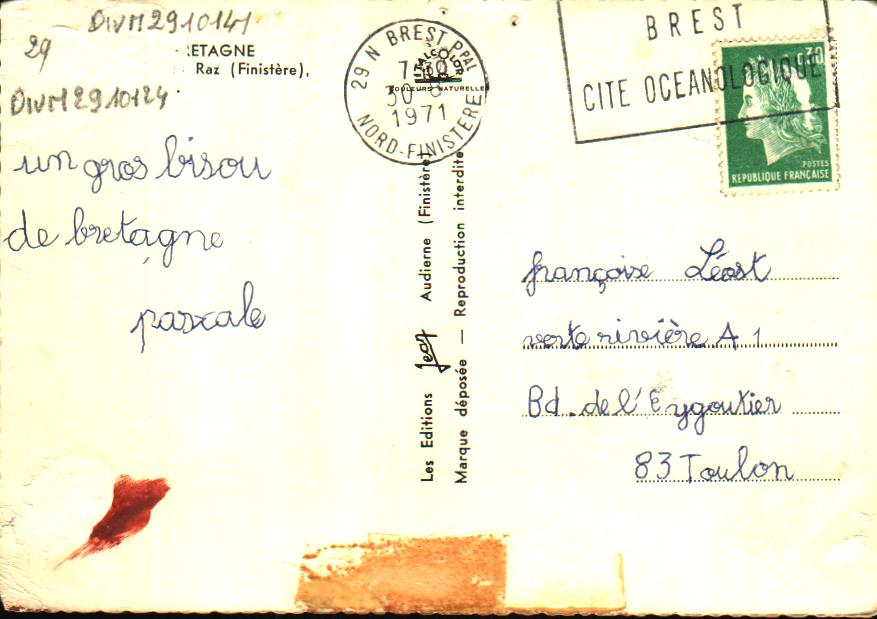 DIVM2910141
29
RETAGNE
Raz (Finistère),
DIVM2910124
un gros bisou
de bretagne
pascale
29 N BREST PPAL
7H30
30
1971
NORD-FINISTERE
ITALCOLOR
COULEURS NATURELLES
Les Editions Jean Audierne (Finistère)
Marque déposée — Reproduction interdite
BREST
CITE OCEANOLOGIQUE
0,30
POSTES
REPUBLIQUE FRANÇAISE
françoise Léost
verte rivière A 1
Bd. de l'Eygoutier
83 Toulon